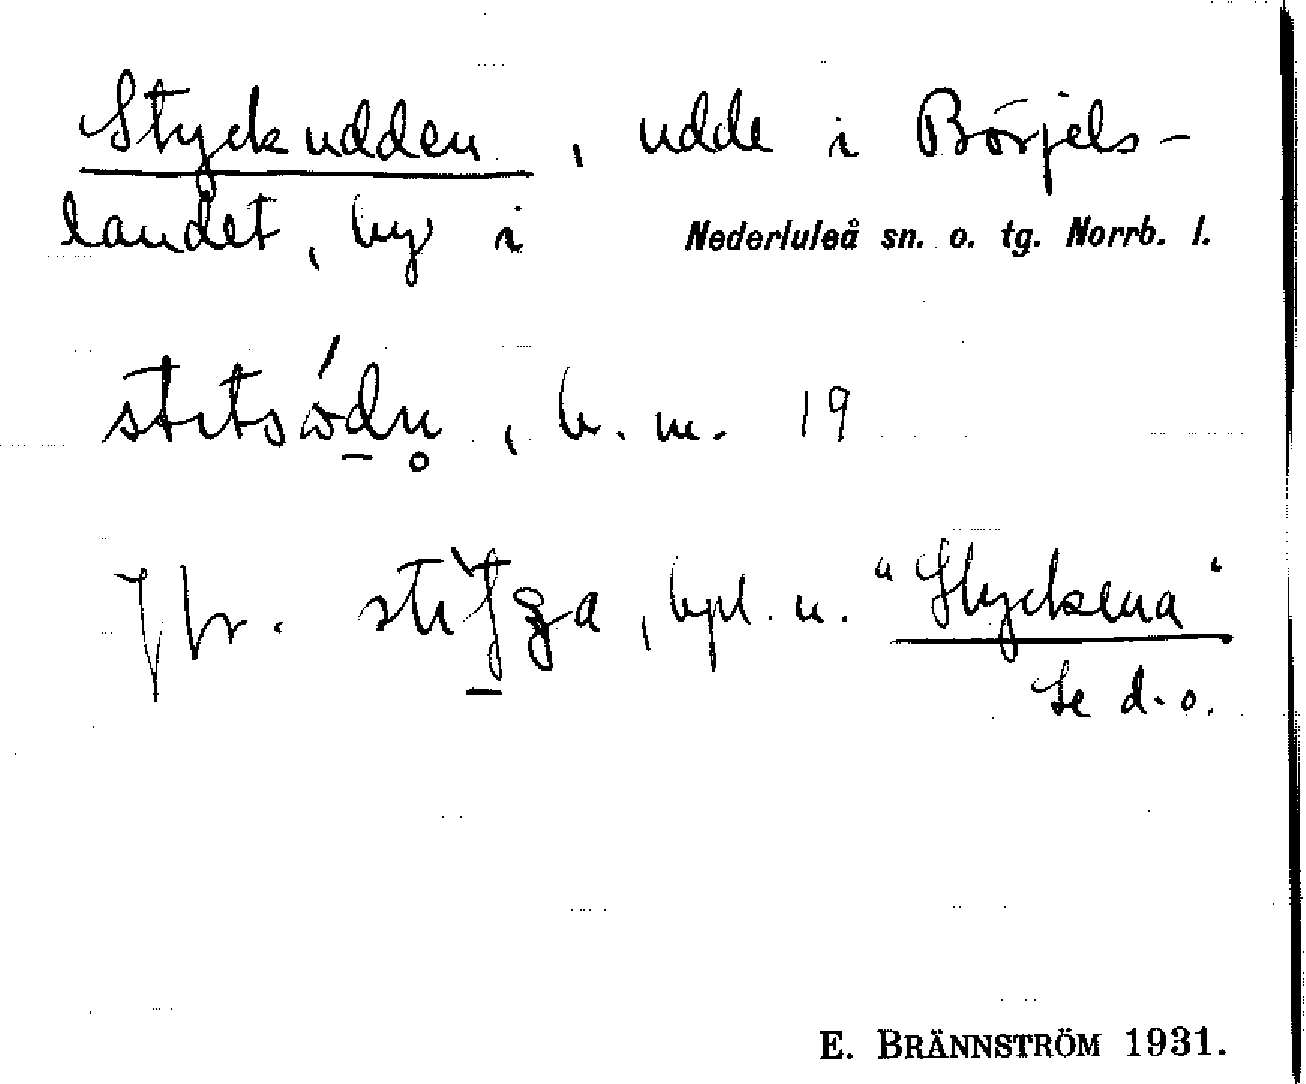 Styckudden, udde i Börjels-
landet, by i Nederluleå sn. o. tg. Norrb. l.
b. m. 19
Jfr. bpl. n. "Styckena"
Se d. o.
E. BRÄNNSTRÖM 1931.